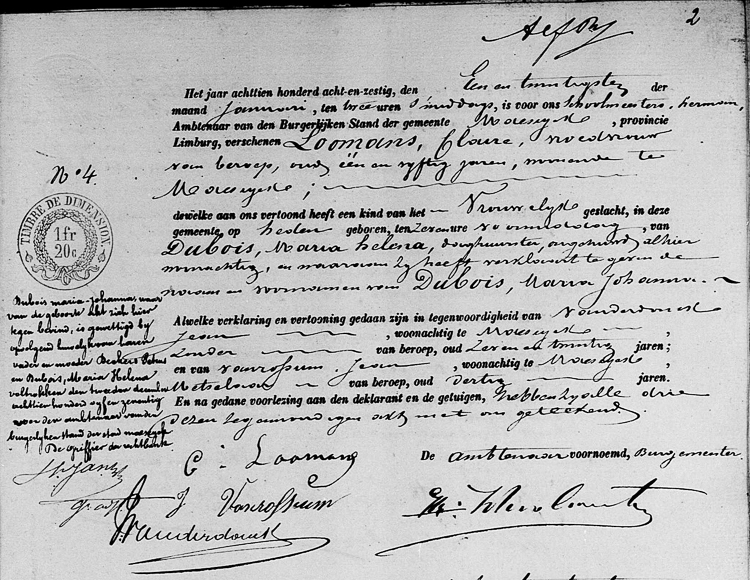 2
Het jaar achttien honderd acht-en-zestig, den Een en twintigsten der
maand Januari, ten twee uren 's middags, is voor ons Schoolmeesters, herman,
Ambtenaar van den Burgerlijken Stand der gemeente Maeseyck, provincie
Limburg, verschenen Loomans, Claire, vroedvrouw
van beroep, oud één en vyftig jaren, wonende te
Maeseyck;
dewelke aan ons vertoond heeft een kind van het Vrouwelyk geslacht, in deze
gemeente, op heden geboren, ten zeven ure voormiddag, van
Dubois, Maria helena, daghuurster, ongehuwd, alhier
woonachtig, en waaraan zy heeft verklaard te geven de
naam en voornamen van Dubois, Maria Johanna.
Alwelke verklaring en vertooning gedaan zijn in tegenwoordigheid van Vanderdonck
Jean, woonachtig te Maeseyck
Zonder van beroep, oud Zeven en twintig jaren;
en van Vanrossum, Jean, woonachtig te Maeseyck
Metselaar van beroep, oud dertig jaren.
En na gedane voorlezing aan den deklarant en de getuigen, hebben zy alle drie
dezen tegenwoordigen akt met ons geteekend.
De Ambtenaar voornoemd, Burgemeester.
C. Loomans
J Vanrossum
Vanderdonck
N° 4.
TIMBRE DE DIMENSION.
1fr
20c
Dubois maria-Johanna, waar
van de geboorte akt zich hier
tegen bevind, is gewettigd by
opvolgend huwelyk van haren
vader en moeder Beckers Petrus
en Dubois, Maria Helena
voltrokken den tweeden
achttien honderd vyf en zeventig
voor den ambtenaar van den
burgelyken stand der stad maeseyck
De Griffier der rechtbank